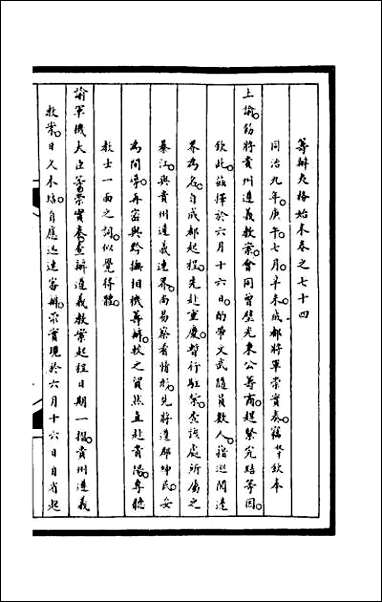 籌辦夷務始末卷之七十四
同治九年。庚午。七月。辛未。成都將軍崇實奏。竊 欽奉
上諭。飭將貴州遵義教案。會同曾璧光秉公籌商。趕緊完結等因。
欽此。茲擇於六月十六日。酌帶文武隨員數人。藉巡閱邊
界為名。自成都起程。先赴重慶。暫行駐紮。查該處所屬之
綦江。與貴州遵義連界。尚易察看情形。兒將遵郡紳民妥
為開導。再密與黔撫相機籌辦。較之貿然直赴貴陽。專聽
教士一面之詞。似覺得體。
諭軍機大臣等。崇實奏查辦遵義教案起程日期一摺。貴州遵義
教案。日久未結。自應迅速審辦。崇實現於六月十六日自省起